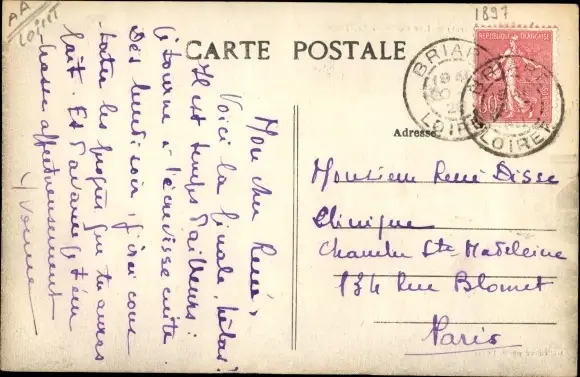 AA
LOIRET
1897
CARTE POSTALE
REPUBLIQUE FRANÇAISE
BRIARE
LOIRET
BRIARE
LOIRET
Adresse
Mon cher René,
Voici la finale, hélas!
Il est temps d'ailleurs:
tourne à l'écrevisse cuite.
Dès lundi soir, j'irai cons-
-tater les progrès que tu auras
fait. Et d'avance je t'em-
-brasse affectueusement
Yvonne
Monsieur René Disse
Clinique
Chambre Ste-Madeleine
134 Rue Blomet
Paris